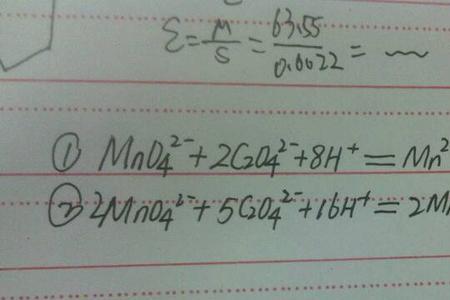 ε = M/S = 63.55/0.0022 =
① MnO₄²⁻ + 2C₂O₄²⁻ + 8H⁺ = Mn²
② 2MnO₄²⁻ + 5C₂O₄²⁻ + 16H⁺ = 2M